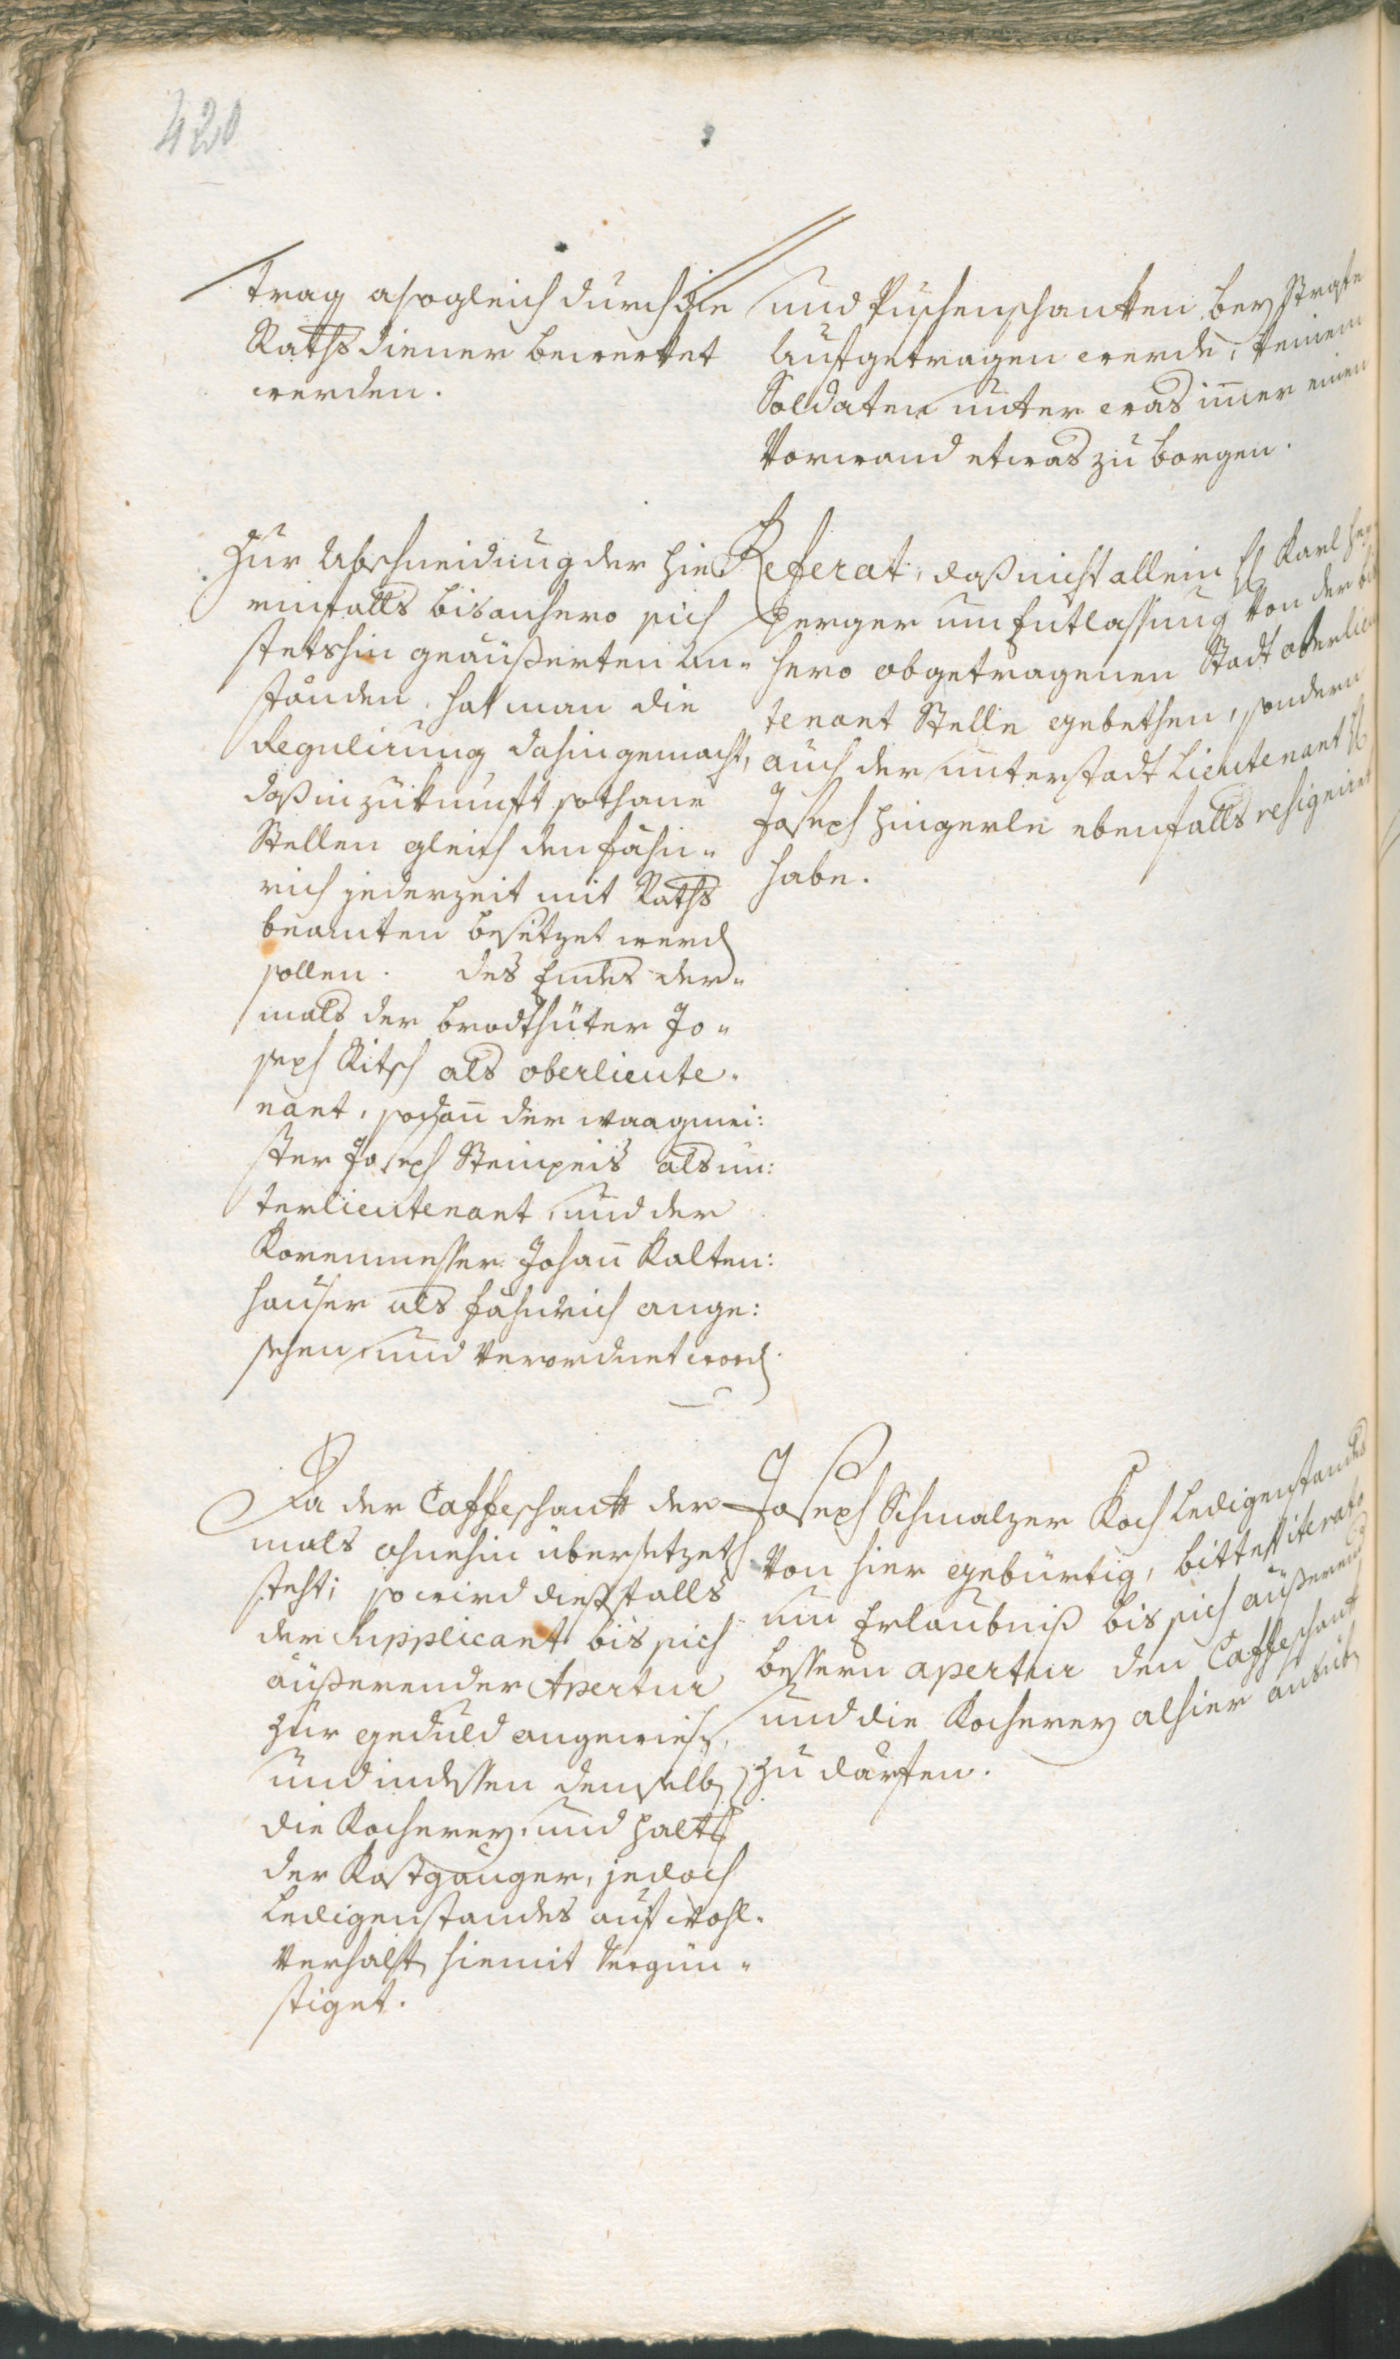 420
trag alsogleich durch die
Rathsdiener bewerket
werden.
und Puschenschankten bey Strafe
aufgetragen werde, keinem
Soldaten unter was imer einen
Vorwand etwas zu borgen.
Zur Abschneidung der hie
rinfalls bisanhero sich
stetshin geäußerten An-
ständen, hat man die
Regulirung dahin gemacht,
daß in zukunft sothane
Stellen gleich den fähn-
rich jederzeit mit Raths
beamten besetzet werd
sollen. des Endes der-
mals der brodhüter Jo-
seph Ritsch als oberlieute-
nant, sodan der waagmei:
ster Joseph Steinpeis als un:
terlieutenant, und der
Kornmesser Johan Kalten:
hauser als fähnrich ange:
sehen und Verordnet word.
Referat, daß nicht allein H Karl
perger um Entlassung von der
hero obgetragenen Stadt oberlieu
tenant Stelle gebethen, sondern
auch der unterstadt Lieutenant H
Joseph Hingerle ebenfalls resignirt
habe.
Da der Caffeschankt der
mals ohnehin übersetzet
steht; so wird diesfalls
der Supplicant bis sich
äußerender Apertur
zur geduld angewiesen,
und indessen demselb
die Kocherey, und halt
der Kostgänger, jedoch
Ledigenstandes auf wohl-
verhalt hiemit vergün-
stiget.
Joseph Schmalzer Koch Ledigenstandes
von hier gebürtig, bittet iterato
um Erlaubniß bis sich äußerend
bessern apertur den Caffeschankt
und die Kocherey alhier ausüb
zu därfen.